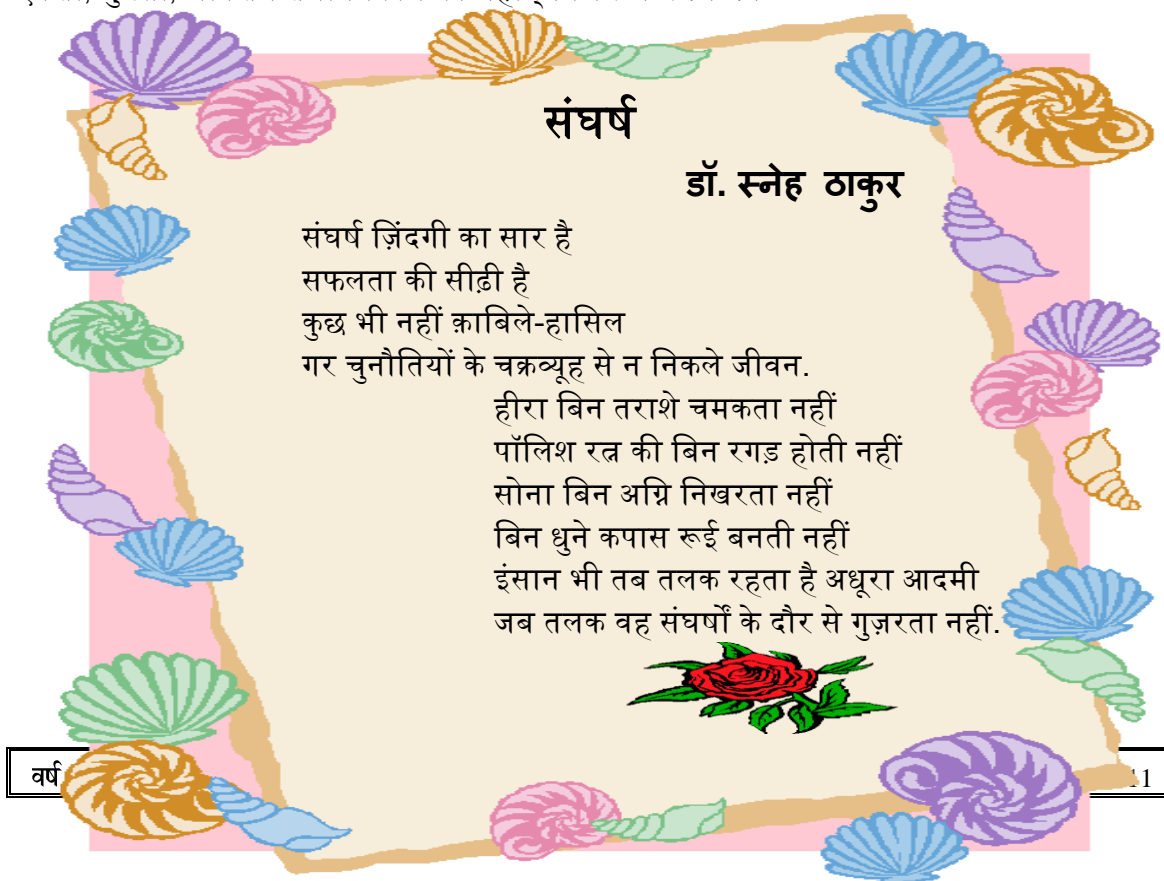 संघर्ष
डॉ. स्नेह ठाकुर
संघर्ष ज़िंदगी का सार है
सफलता की सीढ़ी है
कुछ भी नहीं क़ाबिले-हासिल
गर चुनौतियों के चक्रव्यूह से न निकले जीवन.
हीरा बिन तराशे चमकता नहीं
पॉलिश रत्न की बिन रगड़ होती नहीं
सोना बिन अग्नि निखरता नहीं
बिन धुने कपास रूई बनती नहीं
इंसान भी तब तलक रहता है अधूरा आदमी
जब तलक वह संघर्षों के दौर से गुज़रता नहीं.
वर्ष